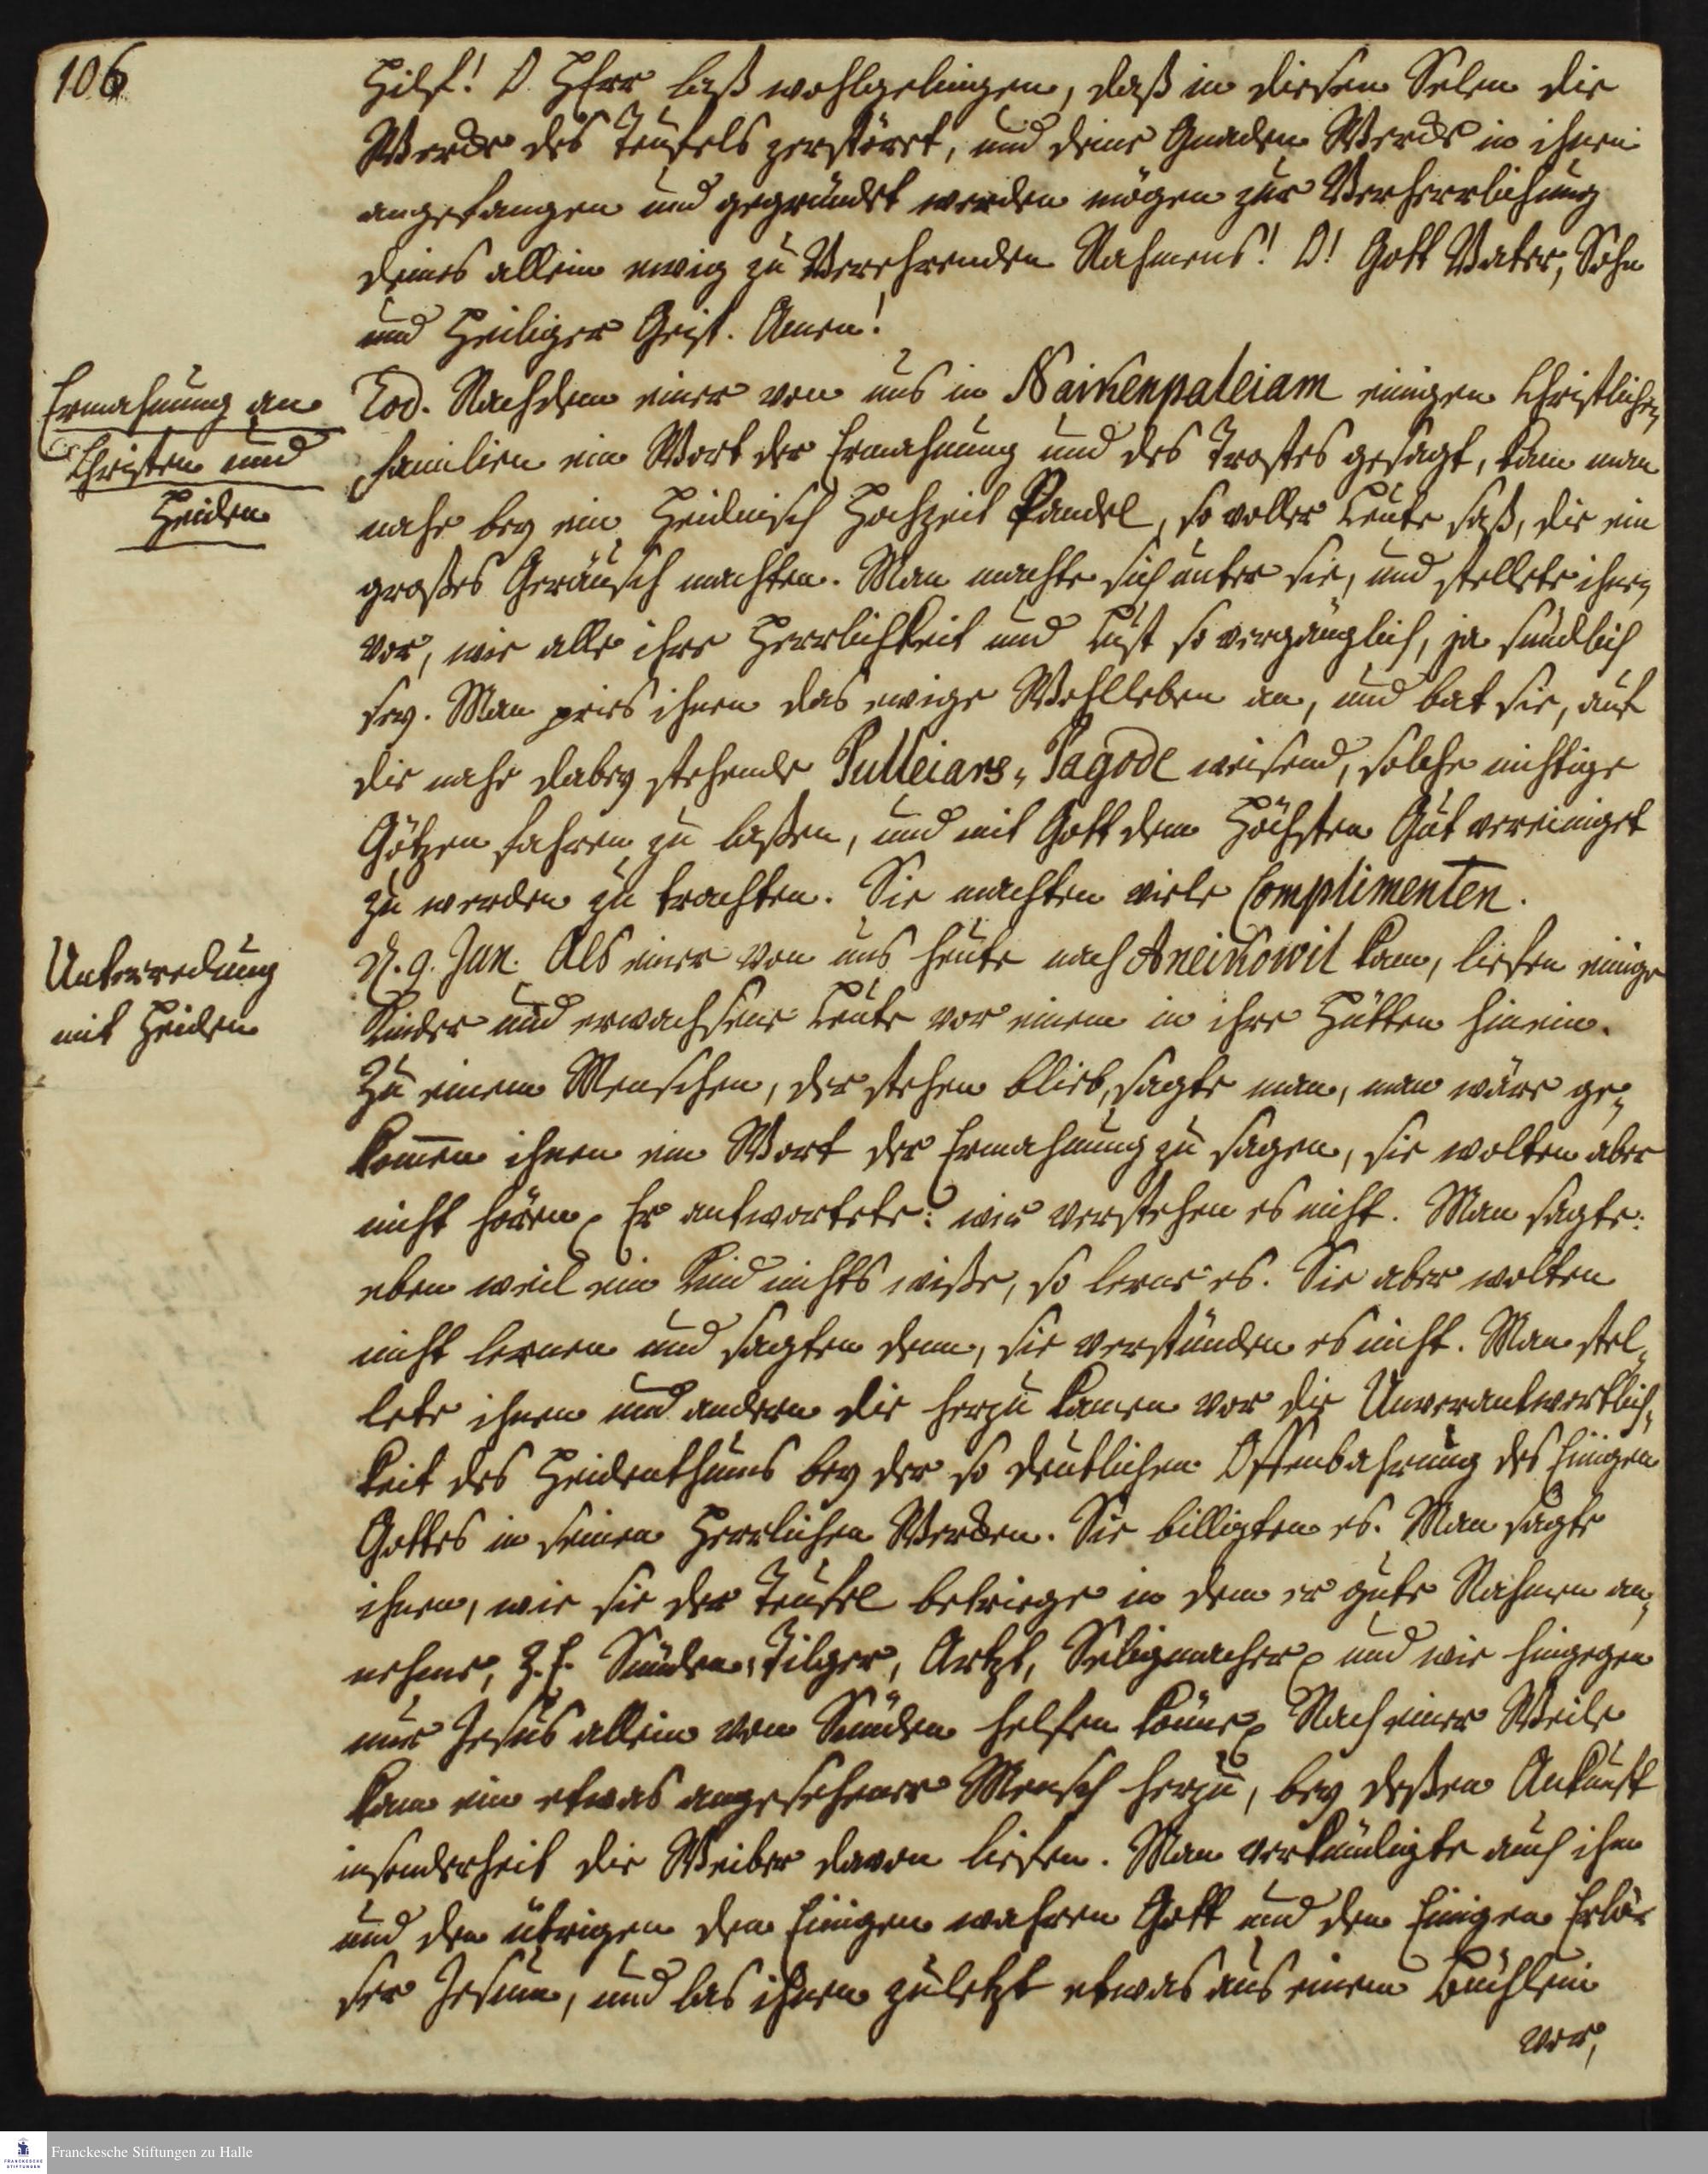 106
Hilf! O HErr laß wohlgelingen, daß in diesen Selen die
Wercke des Teufels zerstöret, und deine Gnaden Wercke in ihnen
angefangen und gegründet werden mögen zur Verherrlichung
deines allein ewig zu Verehrenden Nahmens! O! Gott Vater, Sohn
und Heiliger Geist. Amen!
Ermahnung an
Christen und
Heiden
Eod. Nachdem einer von uns in Naikenpaleiam einigen Christlichen
Familien ein Wort der Ermahnung und des Trostes gesagt, kam man
nahe bey ein Heidnisch Hochzeit Pandel, so voller Leute saß, die ein
großes Geräusch machten. Man machte sich unter sie, und stellete ihnen
vor, wie alle ihre Herrlichkeit und Lust so vergänglich, ja sündlich
sey. Man pries ihnen das ewige Wohlleben an, und bat sie, auf
die nahe dabey stehende Pulleiars-Pagode weisend, solche nichtige
Götzen fahren zu laßen, und mit Gott dem Höchsten Gut vereiniget
zu werden zu trachten. Sie machten viele Complimenten.
Unterredung
mit Heiden
D. 9. Jun. Als einer von uns heute nach Aneikowil kam, liefen einige
Kinder und erwachsene Leute vor einem in ihre Hütten hinein.
Zu einem Menschen, der stehen blieb, sagte man, man wäre ge-
kommen ihnen ein Wort der Ermahnung zu sagen, sie wolten aber
nicht hören. Er antwortete: wir verstehen es nicht. Man sagte:
eben weil ein Kind nichts wiße, so lerne es. Sie aber wolten
nicht lernen und sagten denn, sie verstünden es nicht. Man stel-
lete ihnen und andern die herzu kamen vor die Unverantwortlich-
keit des Heidenthums bey der so deutlichen Offenbahrung des Einigen
Gottes in seinen Herrlichen Wercken. Sie billigten es. Man sagte
ihnen, wie sie der Teufel betriege in dem er gute Nahmen an-
nehme, Z. E. Sünden-Tilger, Artzt, Seligmacher und wie hingegen
nur Jesus allein von Sünden helfen könne. Nach einer Weile
kam ein etwas angesehener Mensch herzu, bey deßen Ankunft
insonderheit die Weiber davon liefen. Man verkündigte auch ihm
und den übrigen den Einigen wahren Gott und den Einigen Erlö-
ser Jesum, und las ihnen zuletzt etwas aus einem Büchlein
vor,
Franckesche Stiftungen zu Halle